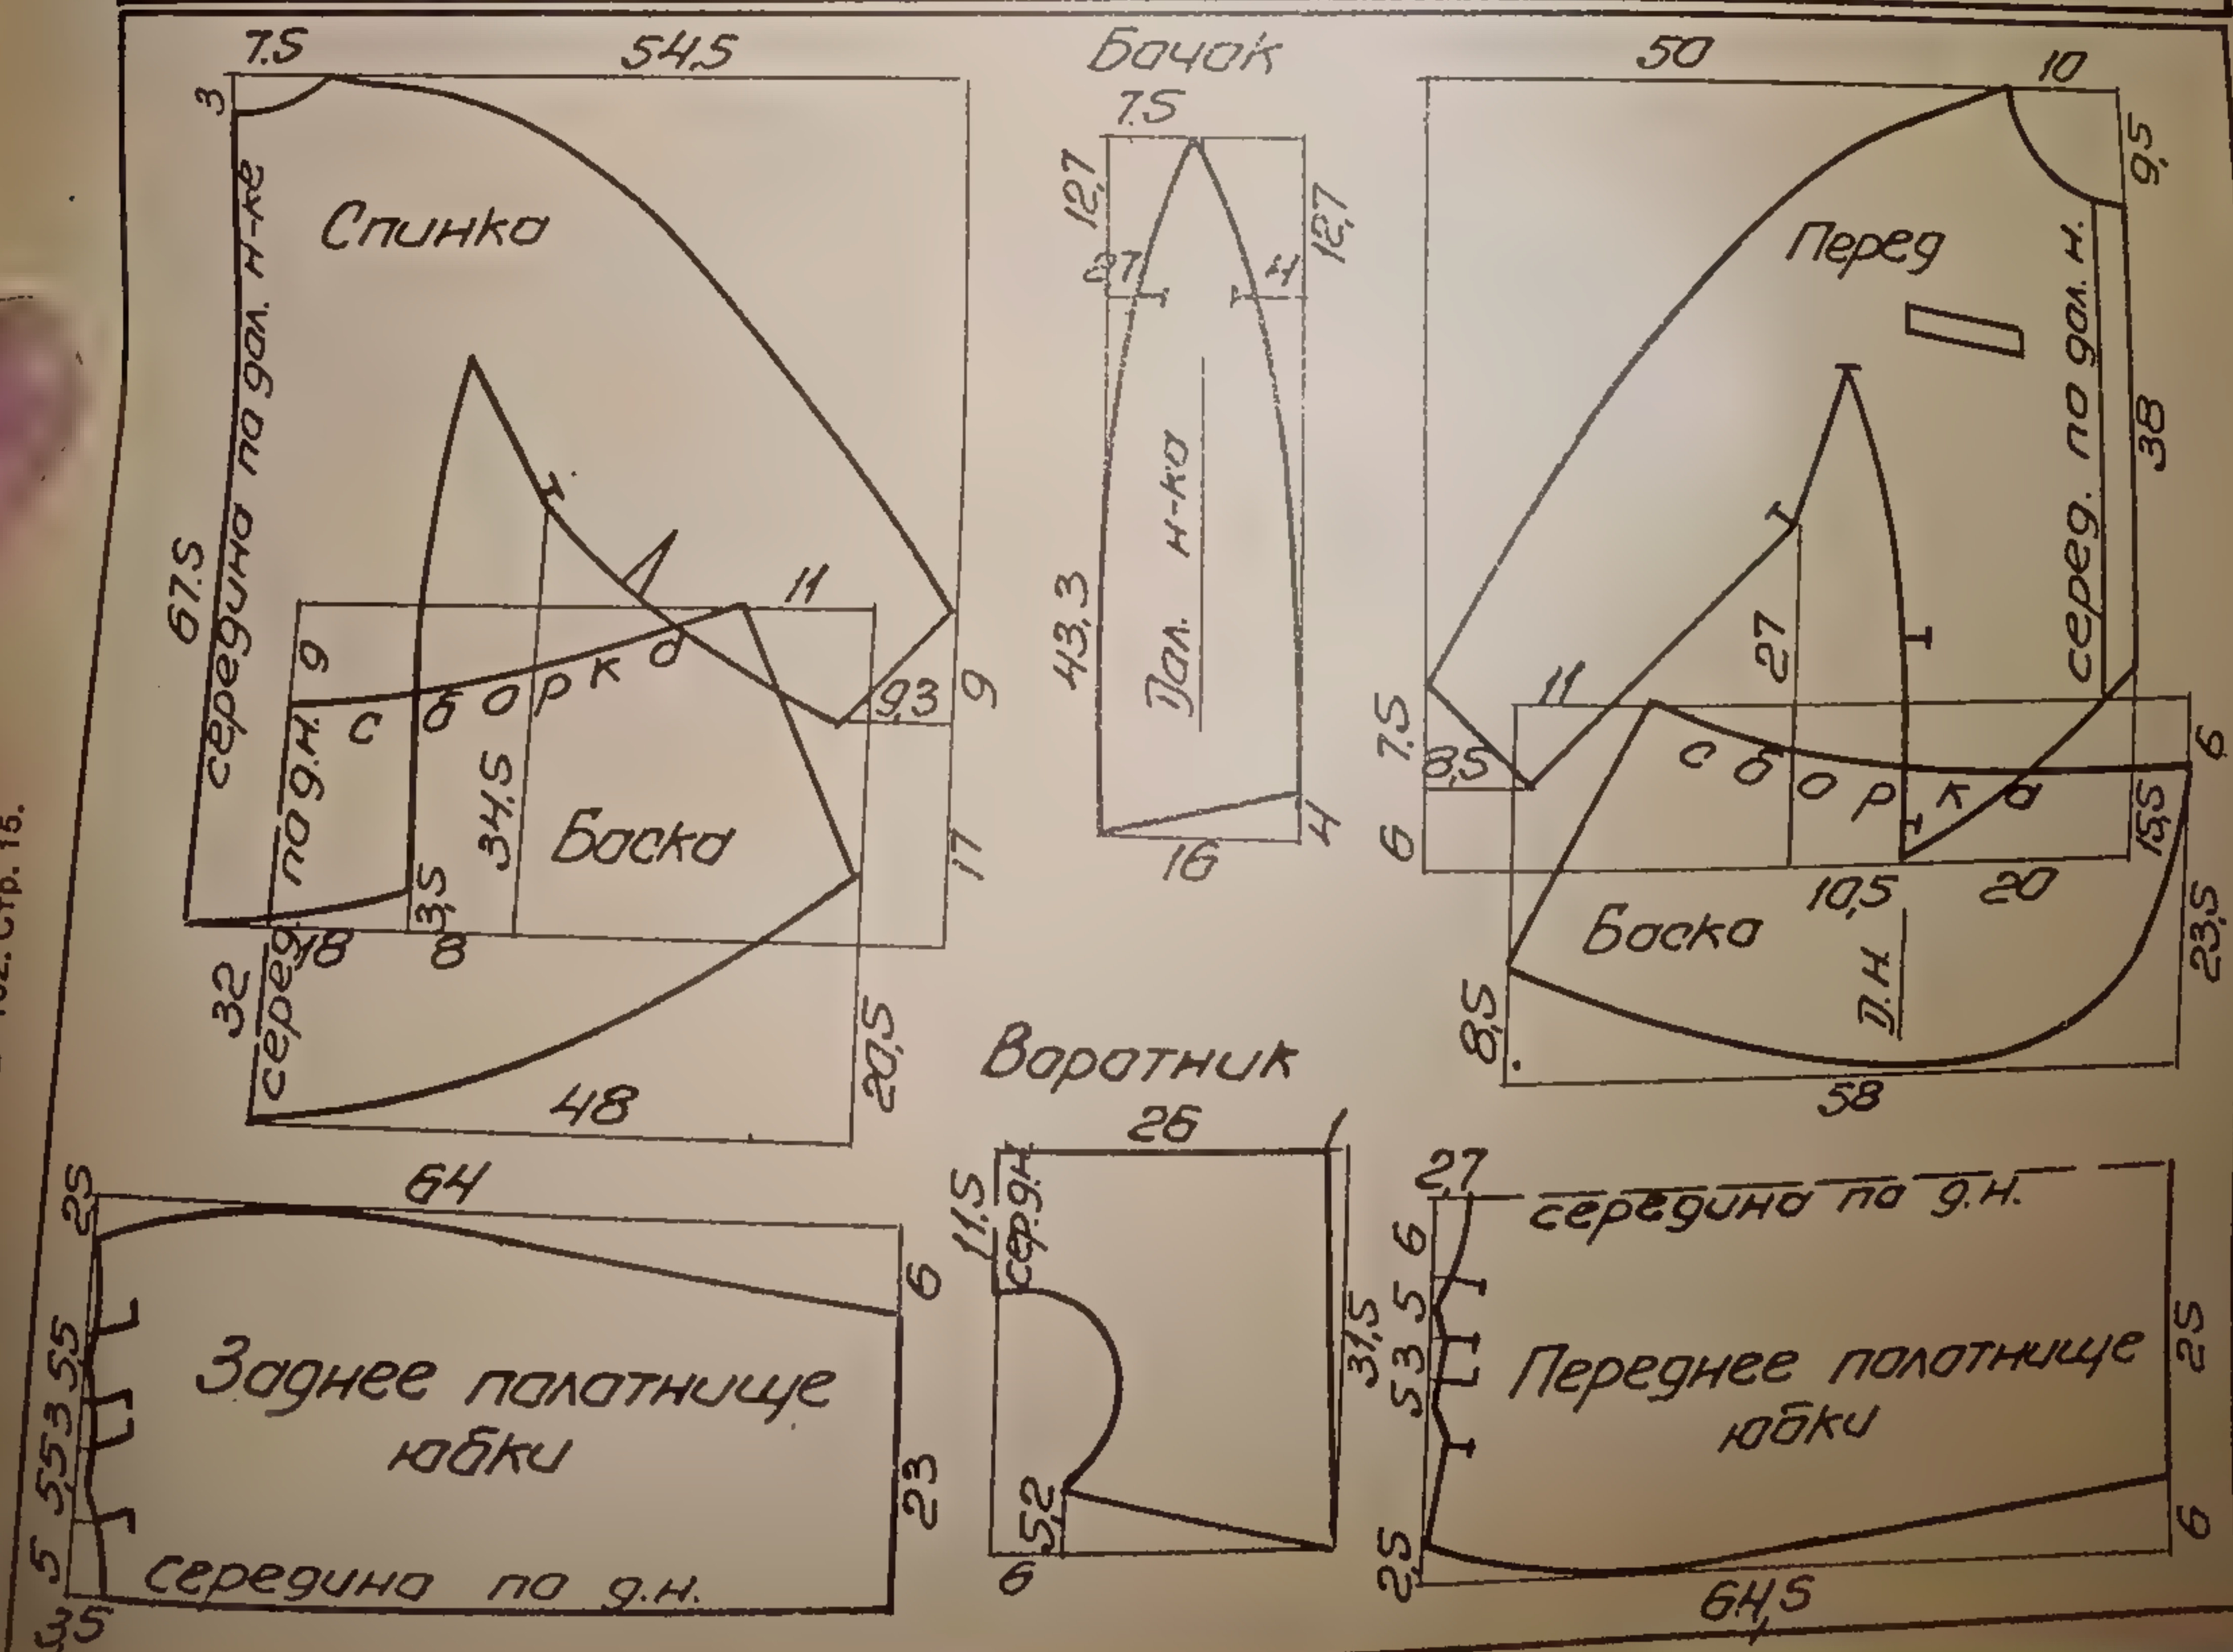 7.5
54,5
3
Спинка
середина по дол. н-ке
67.5
11
9
сборка
9,3
9
34,5
17
Баска
3,5
18
8
серед. по д.н.
32
20,5
48
Бочок
7.5
12,7
12,7
2,7
4
43,3
Дол. н-ка
4
16
50
10
9,5
Перед
серед. по дол. н.
38
27
11
7.5
8,5
6
сборка
6
15,5
10,5
20
Баска
Д.Н.
23,5
8,5
58
Воротник
26
1
11.5
сер.д.н
31,5
5,2
6
64
2,5
6
5,5
3
5,5
5
Заднее полотнище
юбки
23
середина по д.н.
3,5
2,7
середина по д.н.
6
5
3
5
Переднее полотнище
юбки
25
2,5
6
64,5
Стр. 15.